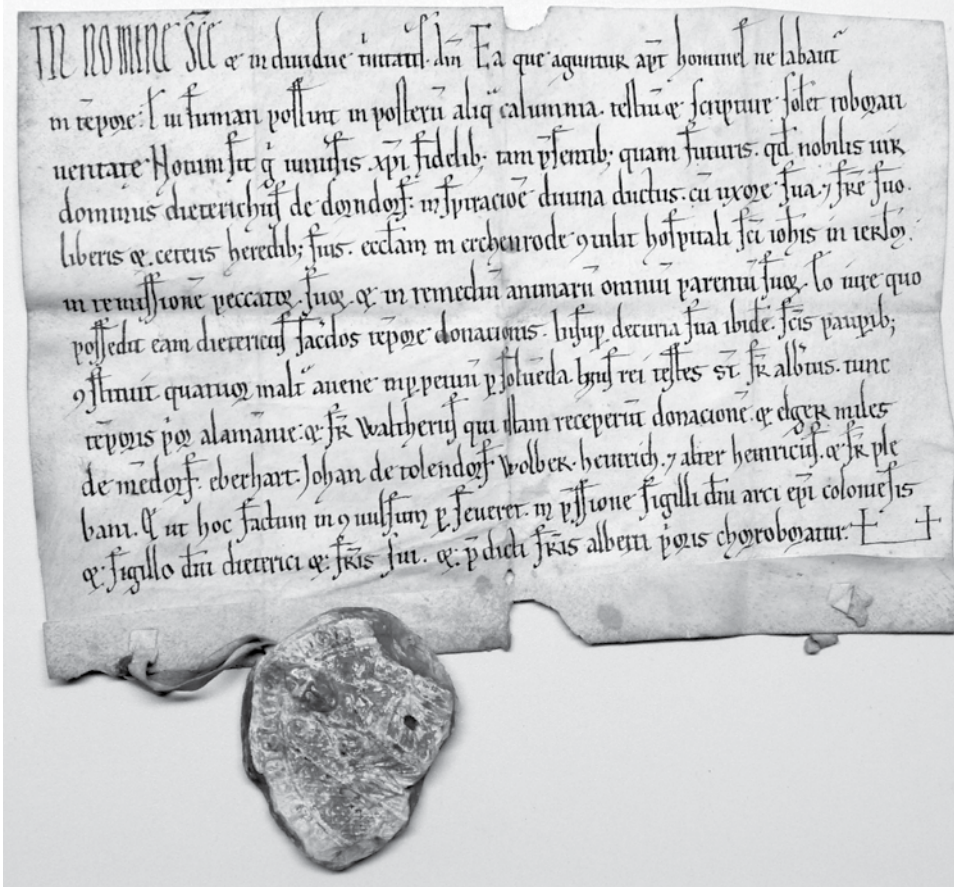 IN NOMINE SCE et individue trinitatis. am̄. Ea que aguntur apt homines ne labant᷑
in tēpore. l' ut sumani possint in posterū aliq̄ calumnia. testiū et scripture solet roborari
veritate. Notum sit g̊ universis xpi fidelib; tam p̄sentib; quam futuris. qd̄ nobilis vir
dominus dieterichus de dorndorf. inspiracioē divina ductus. cū uxore sua ⁊ fr̄e suo.
liberis et ceteris heredib; suis. ecclam in erchenrode ꝯtulit hospitali sci iohis in ierlm̄.
in remissionē peccatoꝝ suoꝝ. et in remediū animarū omniū parentū suoꝝ. Eo iure quo
possedit eam dietericus sacdos tēpore donacionis. Insup decuria sua ibidē. scis paupib;
ꝯstituit. quatuor malt̄ avene inppetuū psolvēda. huius rei testes st̄ fr̄ alb'tus. tunc
tēporis p'or alamānie. et fr̄ Waltherius qui illam receperūt donacionē. et elger miles
de mēdorf. eberhart. Johan de tolendorf. Wolber. heinrich. ⁊ alter heinricus. et fr̄ ple
bani. Et ut hoc factum inꝯvulsum pseveret. inp̄ssione sigilli dn̄i arci ep̄i coloniēsis
et sigillo dn̄i dieterici et fr̄is sui. et p̄dicti fr̄is alberti p'oris choroboratur.